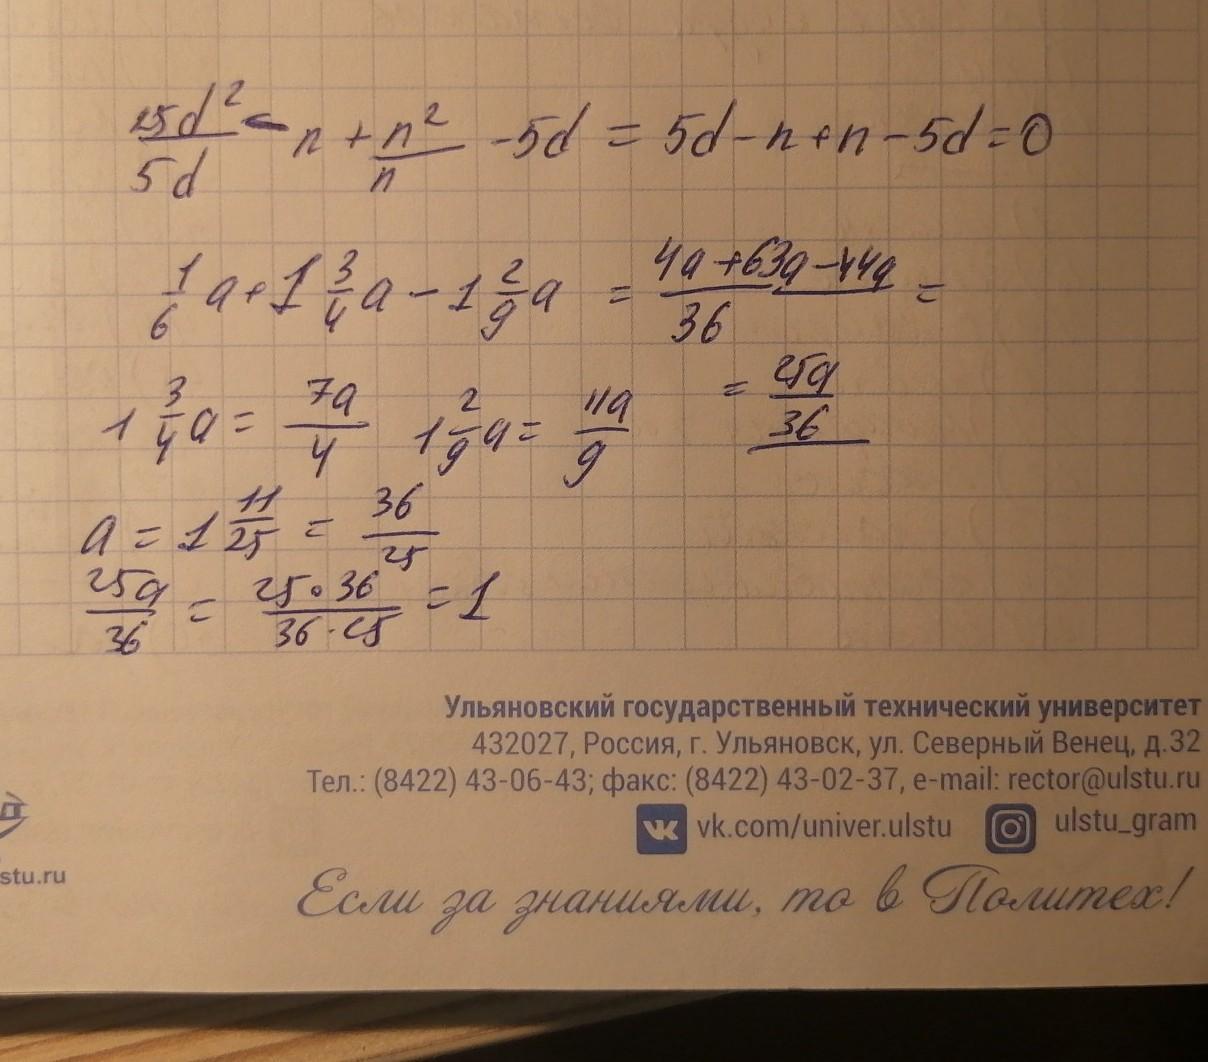 25d²/5d - n + n²/n - 5d = 5d - n + n - 5d = 0
1/6 a + 1 3/4 a - 1 2/9 a = (4a + 63a - 44a)/36 =
1 3/4 a = 7a/4   1 2/9 a = 11a/9   = 25a/36
a = 1 11/25 = 36/25
25a/36 = (25 · 36)/(36 · 25) = 1
Ульяновский государственный технический университет
432027, Россия, г. Ульяновск, ул. Северный Венец, д.32
Тел.: (8422) 43-06-43; факс: (8422) 43-02-37, e-mail: rector@ulstu.ru
vk.com/univer.ulstu   ulstu_gram
stu.ru
Если за знаниями, то в Политех!